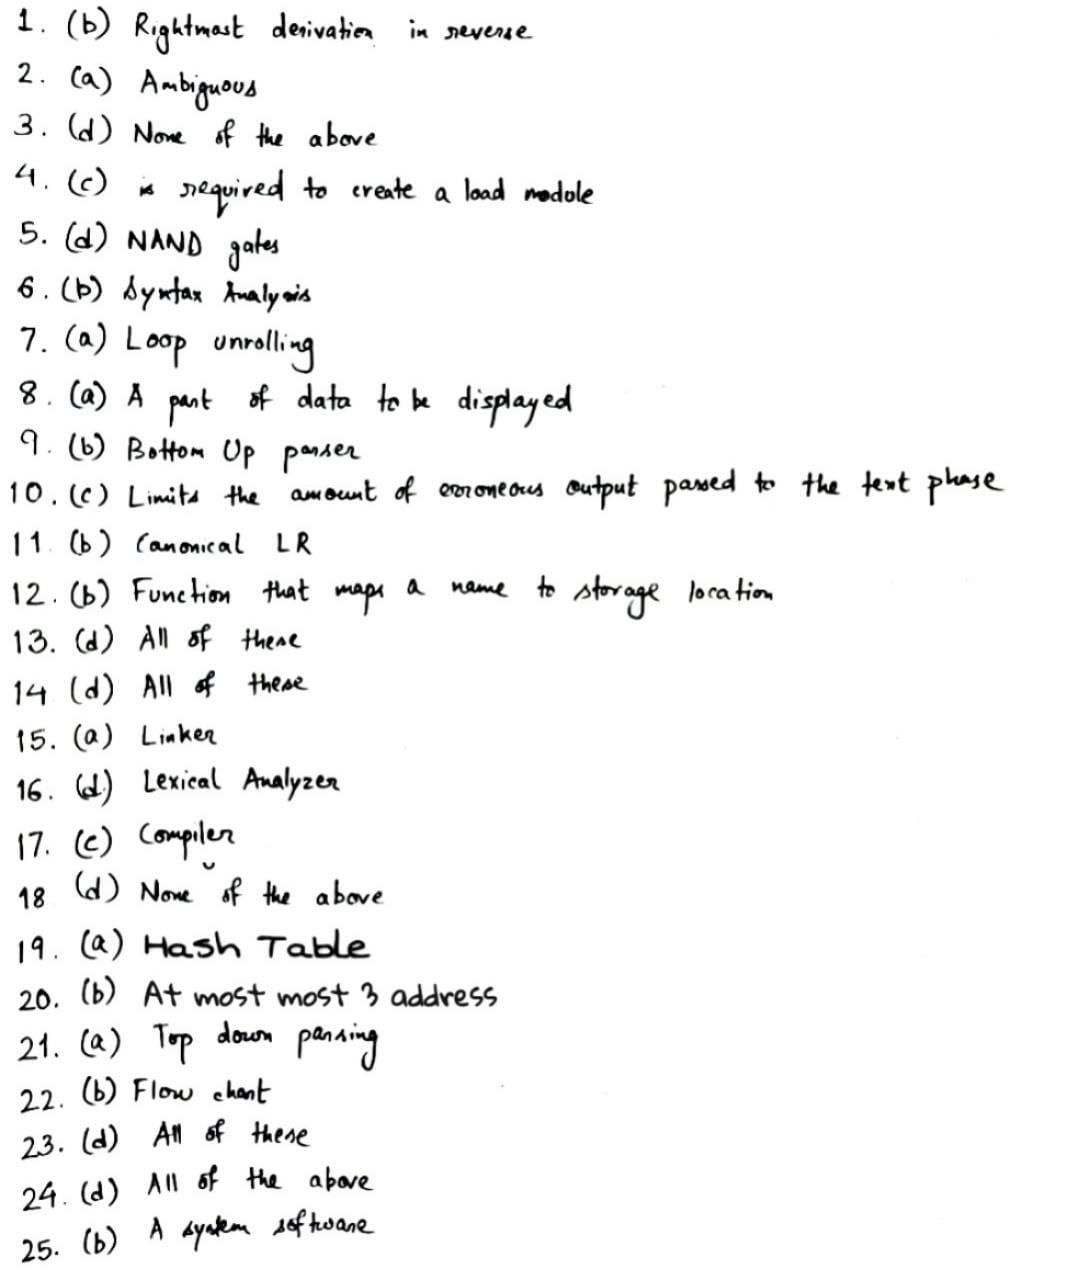 1. (b) Rightmost derivation in reverse
2. (a) Ambiguous
3. (d) None of the above
4. (c) is required to create a load module
5. (d) NAND gates
6. (b) Syntax Analysis
7. (a) Loop unrolling
8. (a) A part of data to be displayed
9. (b) Bottom Up parser
10. (c) Limits the amount of erroneous output passed to the text phase
11. (b) Canonical LR
12. (b) Function that maps a name to storage location
13. (d) All of these
14 (d) All of these
15. (a) Linker
16. (d) Lexical Analyzer
17. (c) Compiler
18 (d) None of the above
19. (a) Hash Table
20. (b) At most most 3 address
21. (a) Top down parsing
22. (b) Flow chart
23. (d) All of these
24. (d) All of the above
25. (b) A system software